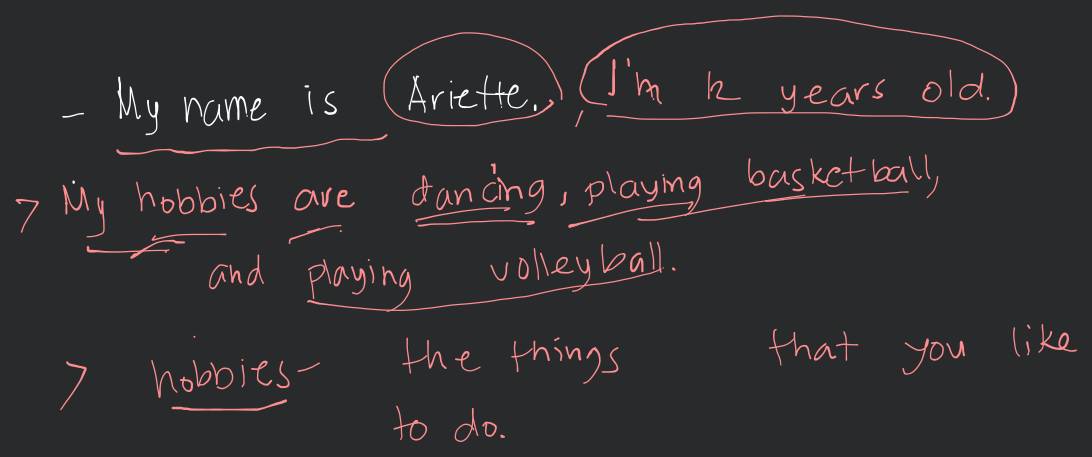 - My name is Ariette. I'm 12 years old.
> My hobbies are dancing, playing basketball,
and playing volleyball.
> hobbies- the things that you like
to do.